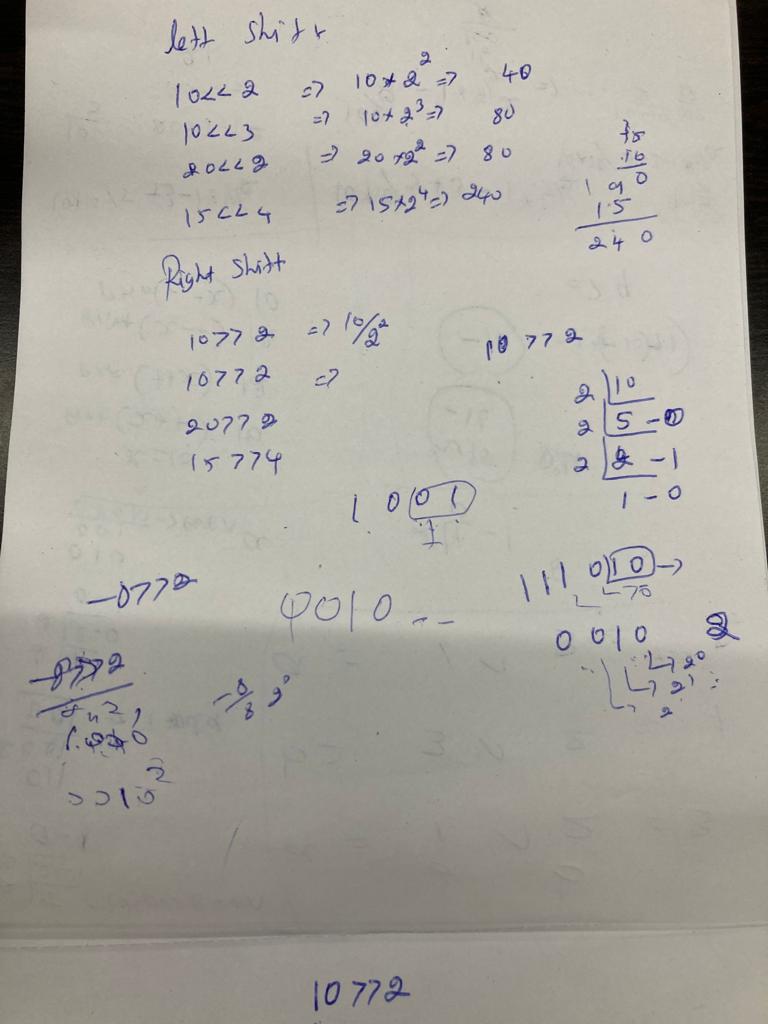 left Shift
10<<2 => 10*2² => 40
10<<3 => 10*2³ => 80
20<<2 => 20*2² => 80
15<<4 => 15*2⁴ => 240
15
16
1 9 0
1 5
2 4 0
Right Shift
10>>2 => 10/2²
10>>2 =>
20>>2
15>>4
10>>2
2 10
2 5 - 0
2 2 - 1
1 - 0
1 0 0 1
1 1 1 0 1 0 ->
0010 --
0 0 1 0 2
2⁰
2¹
2
-8>>2
10>>2